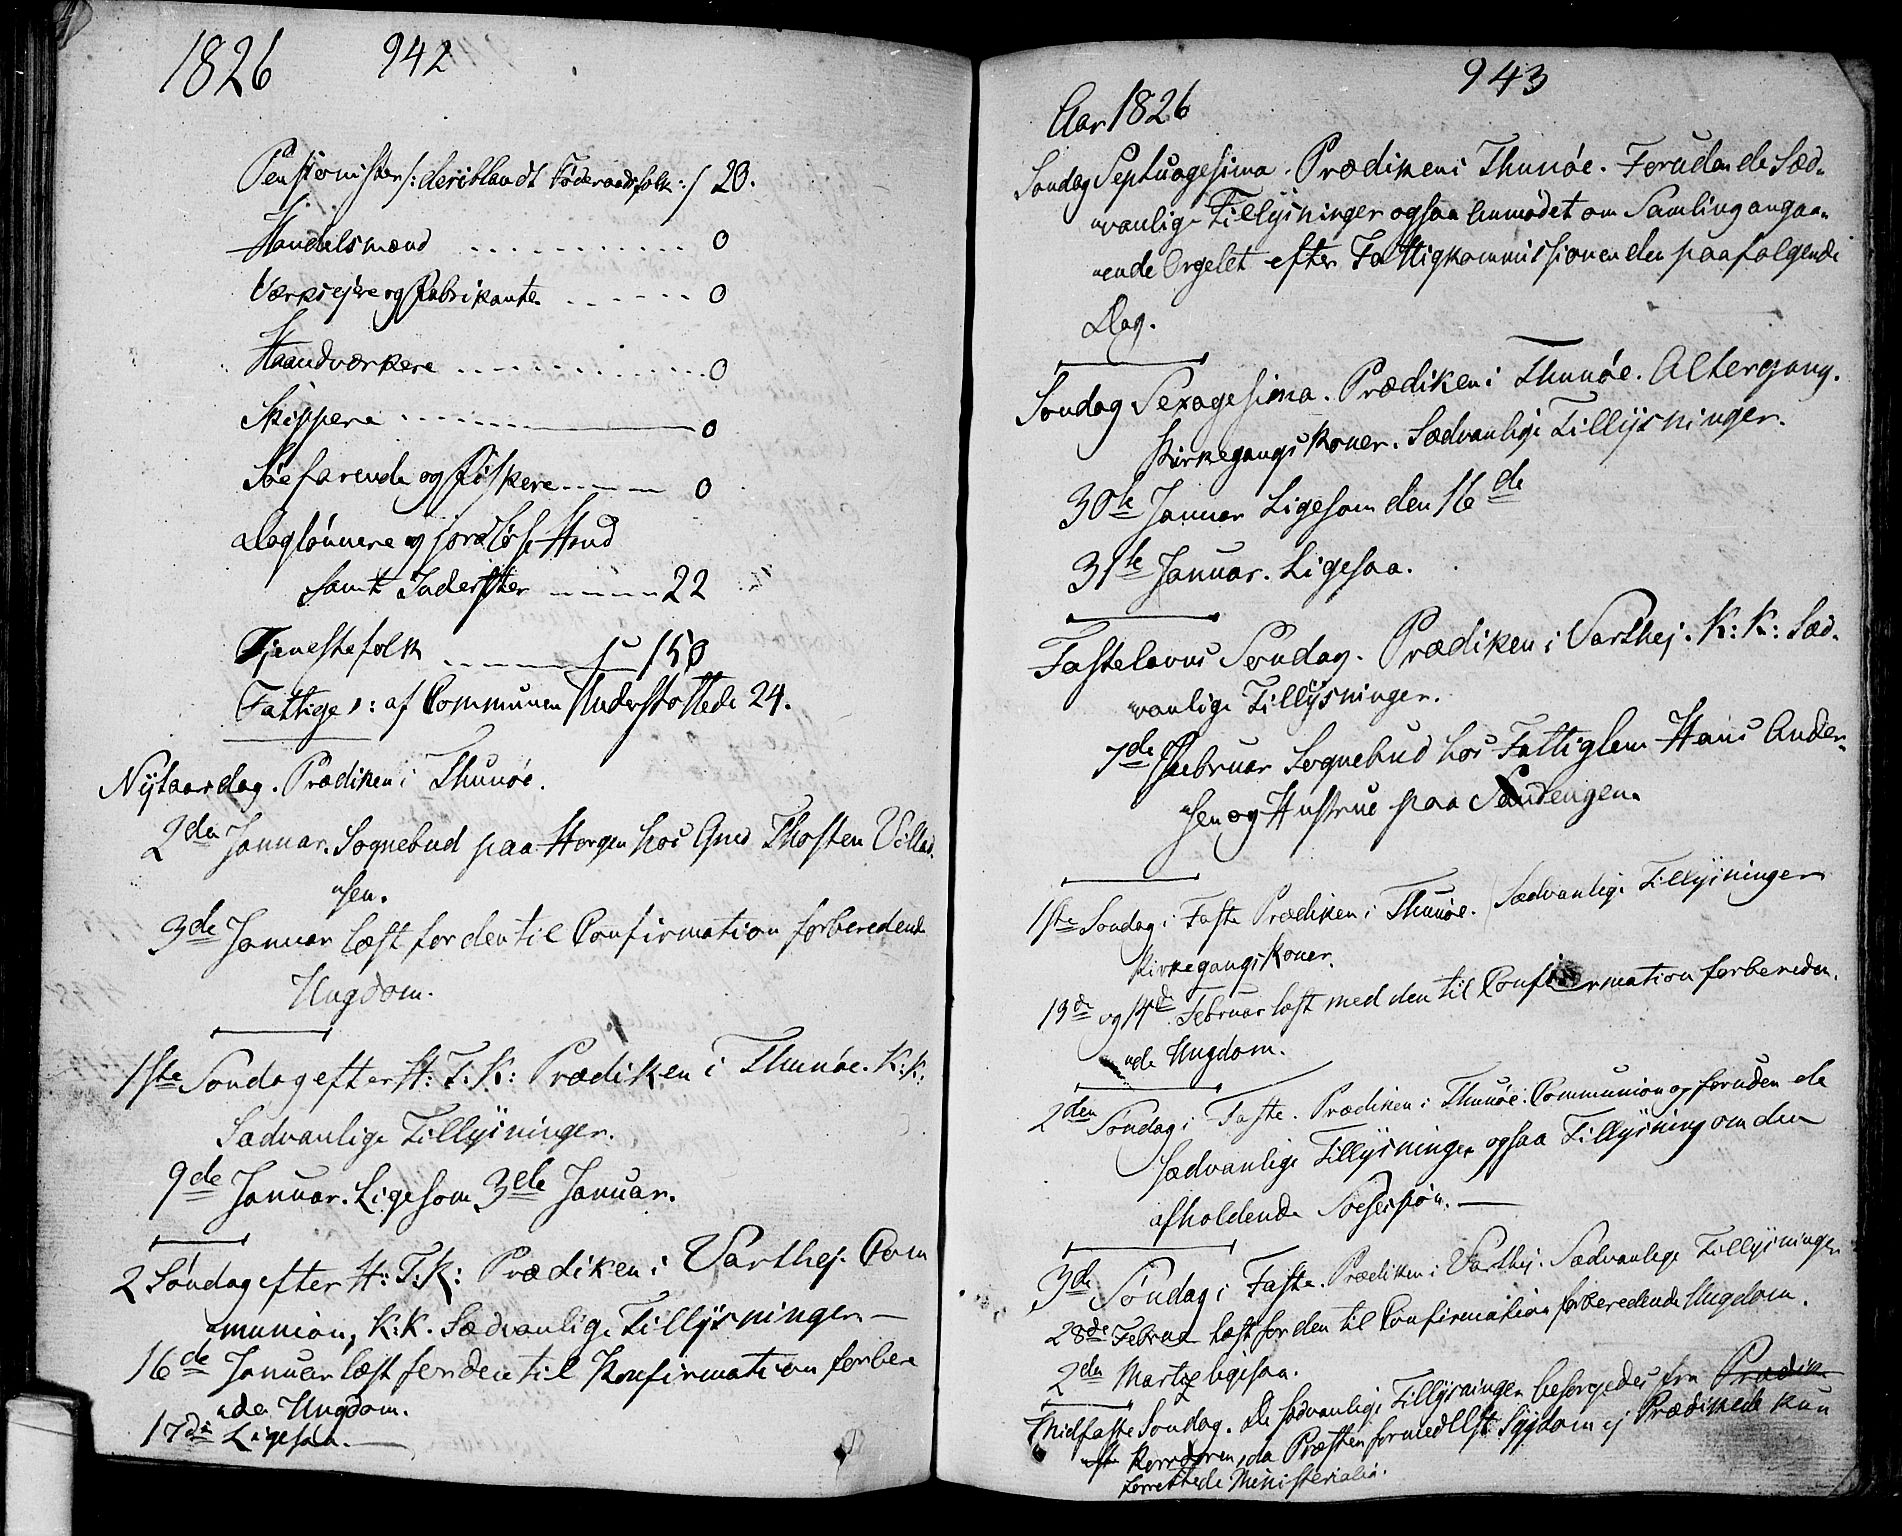 1826 942
Pensionister /: deriblandt Føderaadsfolk :/ 20.
Handelsmænd . . . . . . . . . . . 0
Værksejere og Fabrikanter . . . . . . 0
Haandværkere . . . . . . . . . . . . 0
Skippere . . . . . . . . . 0
Søefarende og Fiskere . . . . 0
Dagleiere og jordløse Huus
samt Inderster . . . . . 22
Tjenestefolk . . . . . . 150
Fattige /: af Communen Understøttede 24.
Nytaarsdag. Prædiken i Thunøe.
2den Januar. Sognebud paa Horgen hos Gmd Thosten Villad„
„sen.
3de Januar læst for den til Confirmation forberedende
Ungdom.
1ste Søndag efter H: T: K: Prædiken i Thunøe. K: K:
Sædvanlige Tillysninger.
9de Januar. Ligesom 3de Januar.
2 Søndag efter H: T: K: Prædiken i Varthej. Com
„munion, K: K. Sædvanlige Tillysninger —
16de Januar læst for den til Konfirmation forbere
„de Ungdom.
17de Ligesaa. —
943
Aar 1826
Søndag Septuagesima. Prædiken i Thunøe. Foruden de Sæd„
„vanlige Tillysninger ogsaa anmodet om Samling angaa„
„ende Orgelet efter Fattigkommissionen den paafølgende
Dag.
Søndag Sexagesima. Prædiken i Thunøe. Altergang.
Kirkegangskoner. Sædvanlige Tillysninger.
30te Januar Ligesom den 16de
31te Januar. Ligesaa.
Fastelavns Søndag. Prædiken i Varthej. K: K: Sæd„
„vanlige Tillysninger.
7de Februar Sognebud hos Fattiglem Hans Ander„
„sen og Hustrue paa Sandengen.
1ste Søndag i Faste Prædiken i Thunøe. Sædvanlige Tillysninger
Kirkegangskoner.
13de og 14de Februar læst med den til Confirmation forbereden„
„de Ungdom.
2den Søndag i Faste. Prædiken i Thunøe. Communion og foruden de
sædvanlige Tillysninger ogsaa Tillysning om den
afholdende Session. —
3de Søndag i Faste. Prædiken i Varthej. Sædvanlige Tillysninger
28de Februar læst for den til Confirmation forberedende Ungdom.
2den Marts ligesaa.
Midfaste Søndag. De sædvanlige Tillysninger besørgedes fra Prædike
Kordøren, da Præsten formedelst Sygdom ej Prædikede kun
forrettede Ministerialia.